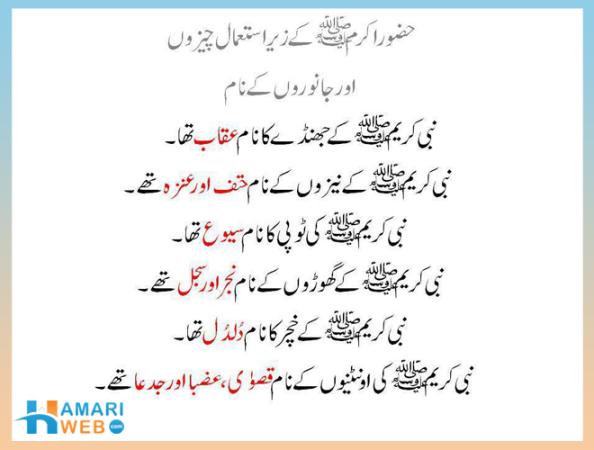 حضور اکرم ﷺ کے زیر استعمال چیزوں
اور جانوروں کے نام
نبی کریم ﷺ کے جھنڈے کا نام عقاب تھا۔
نبی کریم ﷺ کے نیزوں کے نام حتف اور عنزہ تھے۔
نبی کریم ﷺ کی ٹوپی کا نام سیوع تھا۔
نبی کریم ﷺ کے گھوڑوں کے نام نجر اور سجل تھے۔
نبی کریم ﷺ کے خچر کا نام دُلدُل تھا۔
نبی کریم ﷺ کی اونٹنیوں کے نام قصوٰی، عضبا اور جدعا تھے۔
HAMARI
WEB.com